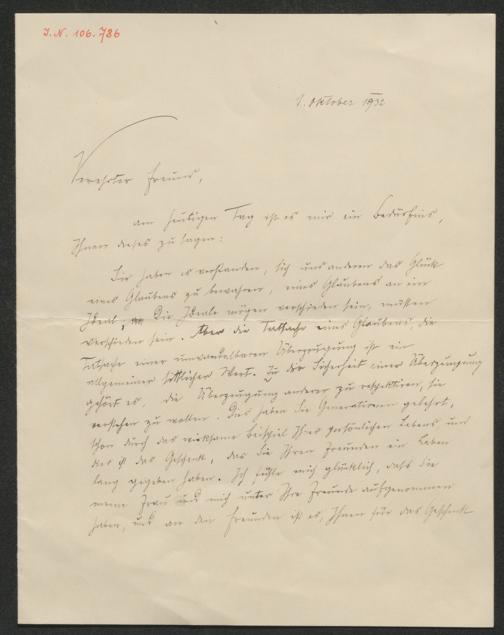 I. N. 106.786
1. Oktober 1932
Verehrter Freund,
am heutigen Tag ist es mir ein Bedürfnis,
Ihnen dieses zu sagen:
Sie haben es verstanden, sich und anderen das Glück
eines Glaubens zu bewahren, eines Glaubens an ein
Ideal; Die Ideale mögen verschieden sein, müssen
verschieden sein. Aber die Tatsache eines Glaubens, die
Tatsache einer unwandelbaren Überzeugung ist ein
allgemeiner sittlicher Wert. Zu der Sicherheit einer Überzeugung
gehört es, die Überzeugung anderer zu respektieren, sie
verstehen zu wollen. Das haben Sie Generationen gelehrt,
schon durch das wirksame Beispiel Ihres persönlichen Lebens und
das ist das Geschenk, das Sie Ihren Freunden ein Leben
lang gegeben haben. Ich fühle mich glücklich, daß Sie
meine Frau und mich unter Ihre Freunde aufgenommen
haben, und an den Freunden ist es, Ihnen für das Geschenk